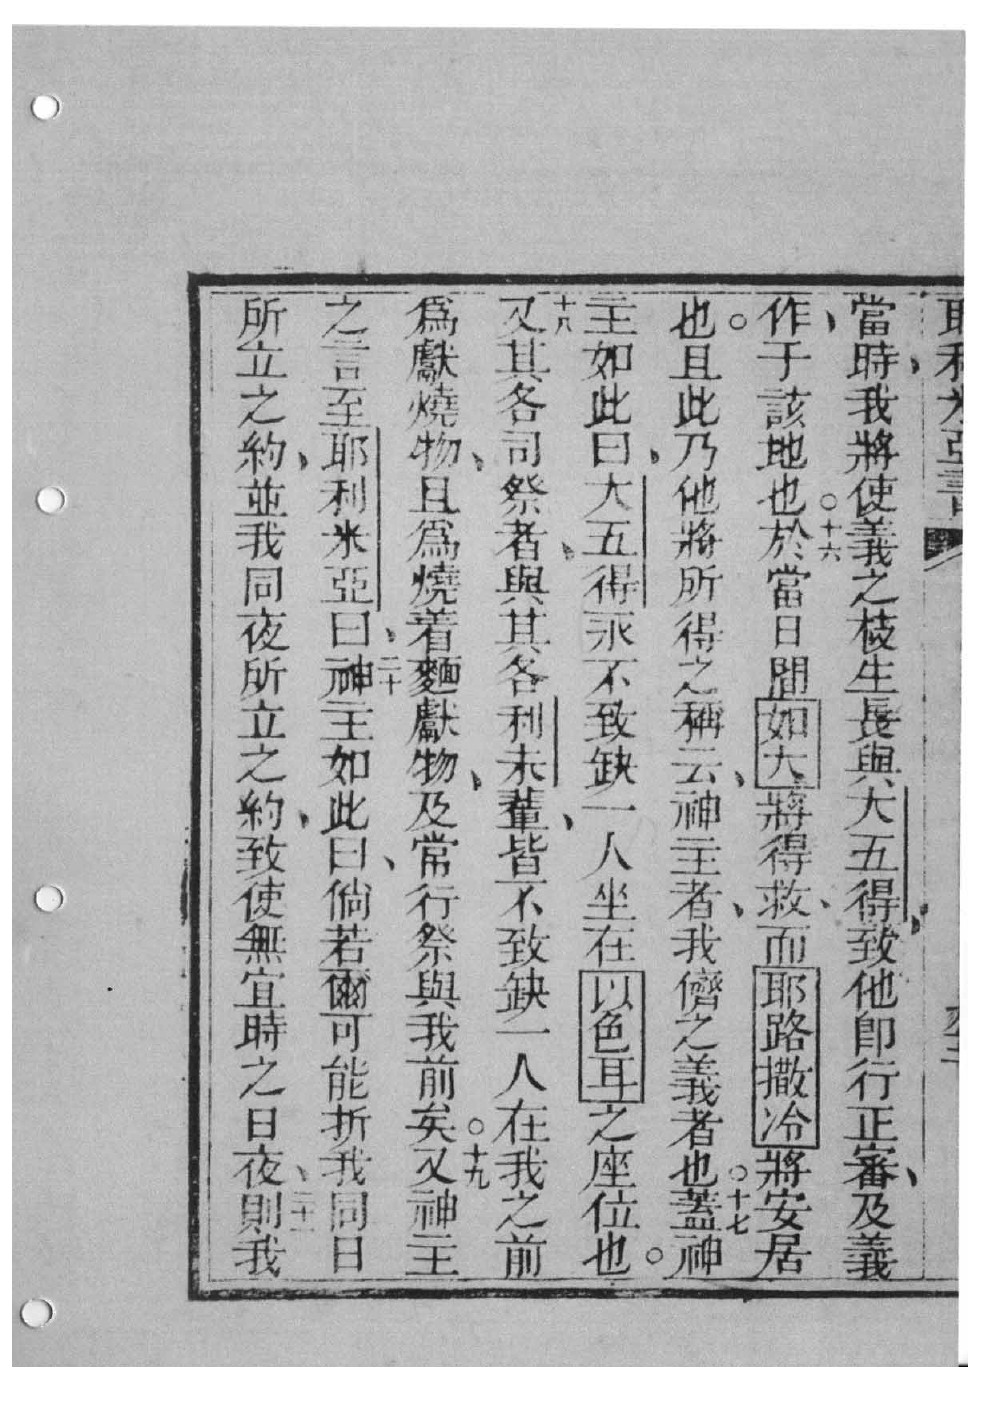 耶利米亞書
當時、我將使義之枝生長與大五得、致他卽行正審、及義
作、于該地也。十六於當日間如大將得救、而耶路撒冷將安居
也。且此乃他將所得之稱云、神主者、我儕之義者也。十七蓋神
主如此曰、大五得永不致缺一人坐在以色耳之座位也。
十八又其各司祭者、與其各利未輩、皆不致缺一人在我之前
爲獻燒物、且爲燒着麵獻物、及常行祭與我前矣。十九又神主
之言至耶利米亞曰、二十神主如此曰、倘若爾可能折我同日
所立之約、並我同夜所立之約、致使無宜時之日夜、二十一則我